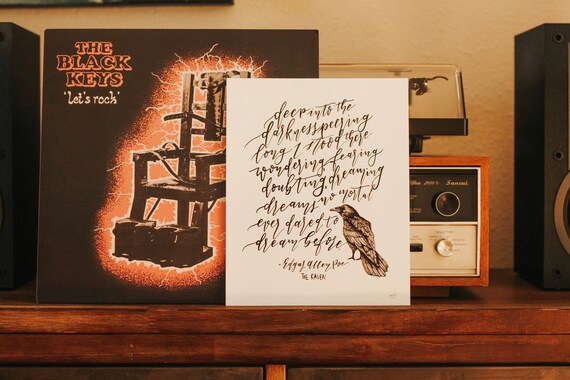 THE
BLACK
KEYS
'Let's rock'
deep into the
darkness peering
long I stood there
wondering fearing
doubting dreaming
dreams no mortal
ever dared to
dream before
-Edgar Allen Poe
THE RAVEN
Sansui